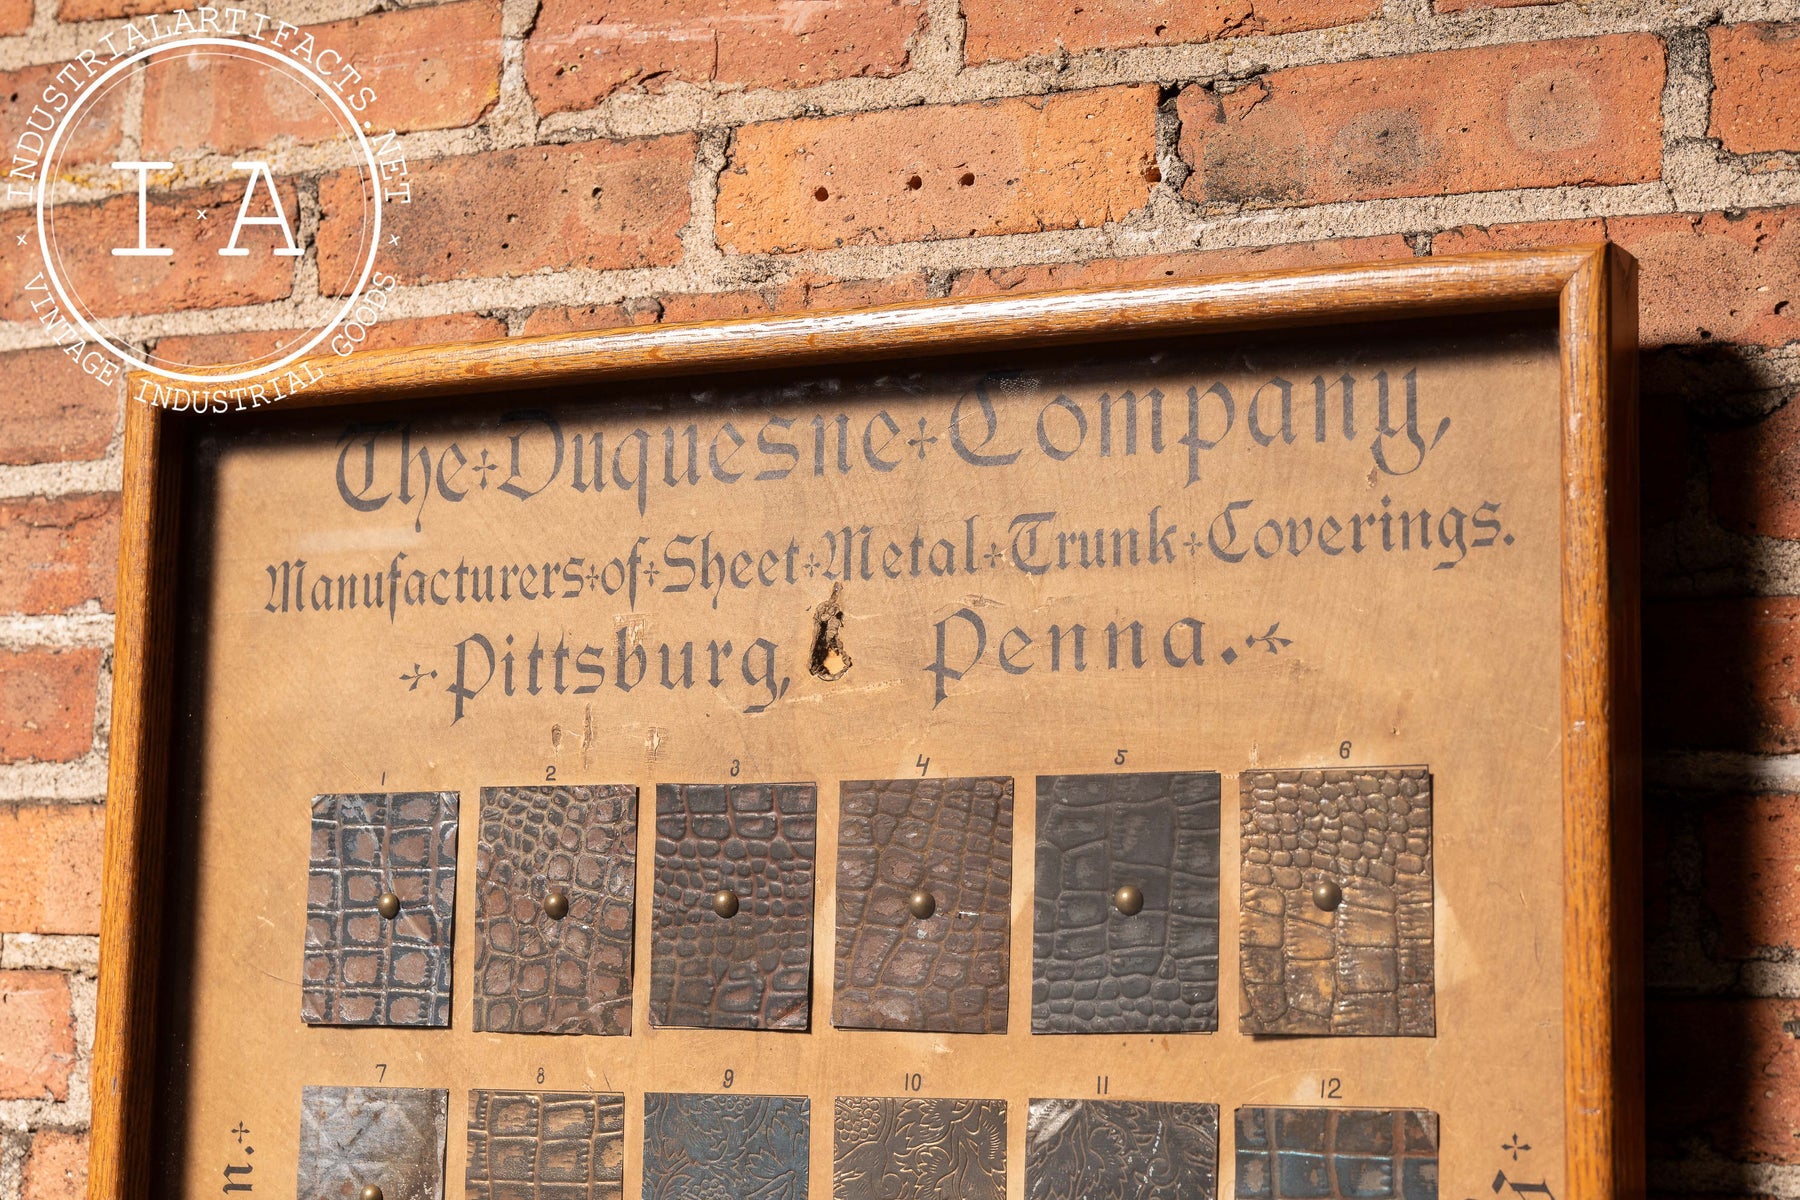 INDUSTRIALARTIFACTS.NET
I x A
x x
VINTAGE INDUSTRIAL GOODS
The Duquesne Company,
Manufacturers of Sheet Metal Trunk Coverings.
Pittsburg, Penna.
1 2 3 4 5 6
7 8 9 10 11 12
n.